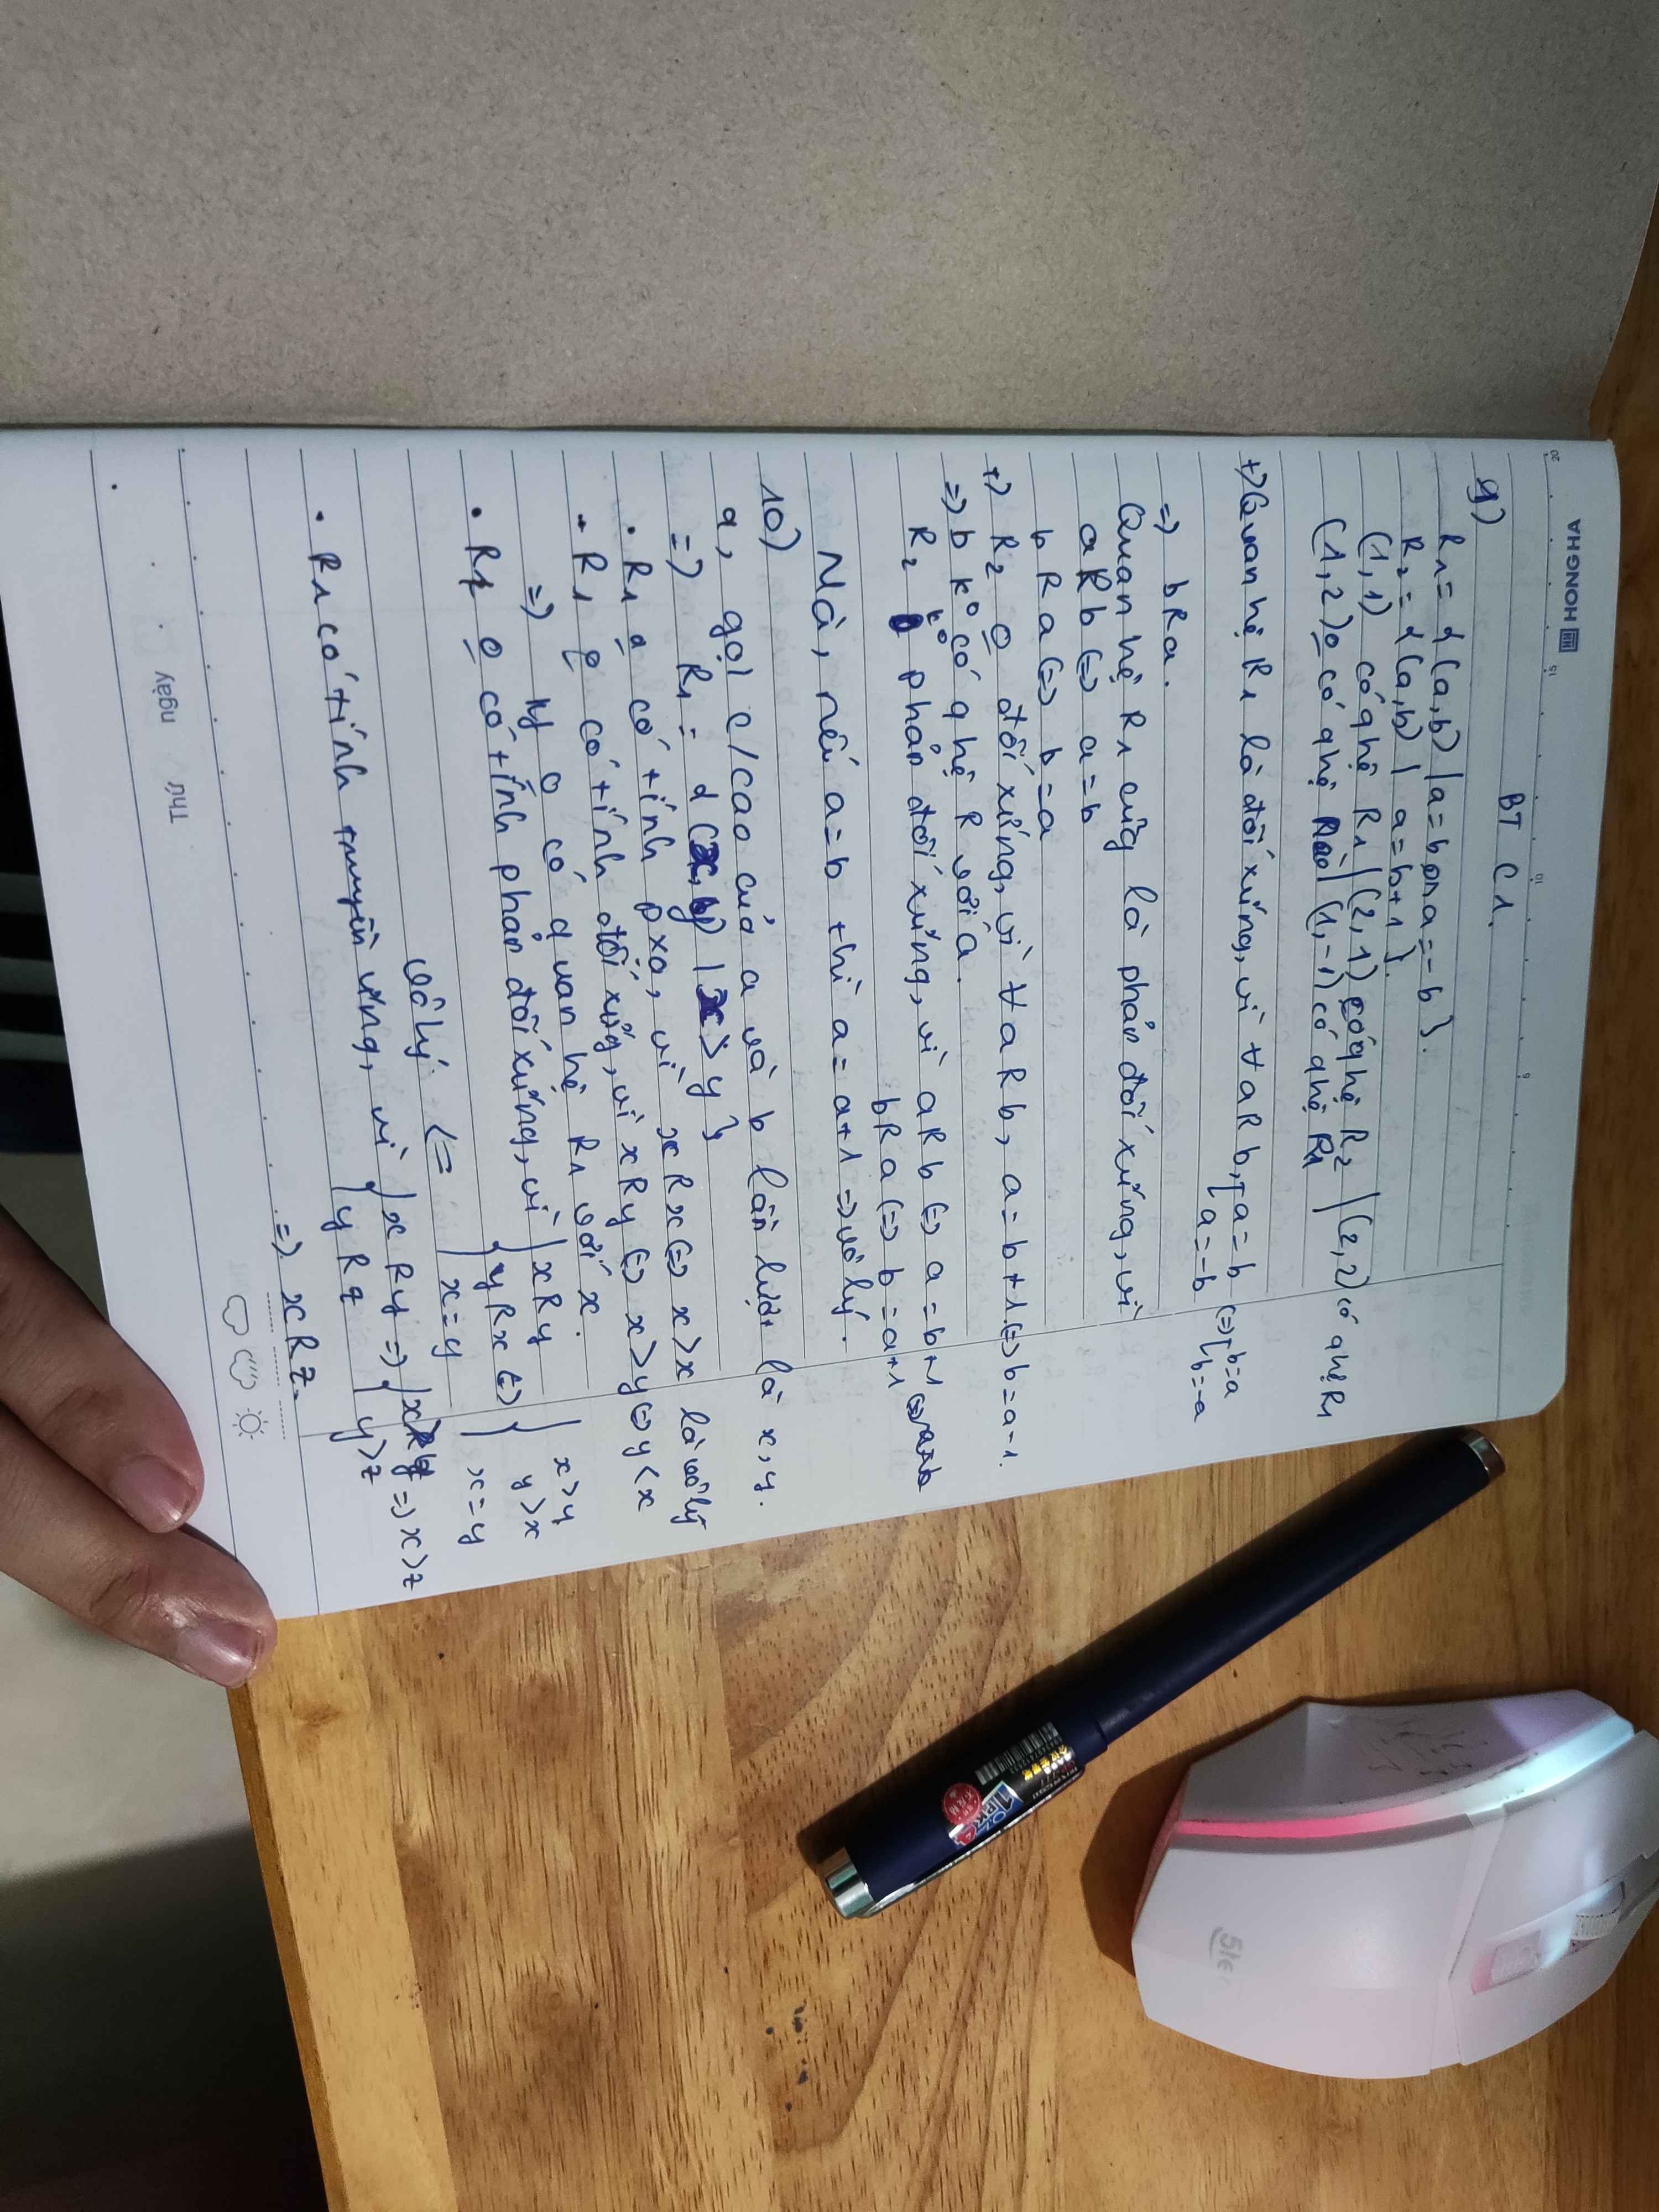 HONG HA
20 15 10 5
BT C1.
9)
R1 = {(a,b) | a=b or a=-b}.
R2 = {(a,b) | a=b+1}.
(1,1) có qhệ R1 | (2,1) có qhệ R2 | (2,2) có qhệ R1
(1,2) o có qhệ nào | (1,-1) có qhệ R1
+) Quan hệ R1 là đối xứng, vì ∀ a R b, [a = b (=) [b=a
a = -b b=-a
=) b R a.
Quan hệ R1 cũg là phản đối xứng, vì
a R b (=) a = b
b R a (=) b = a
+) R2 o đối xứng, vì ∀ a R b, a = b + 1 (=) b = a - 1.
=) b k° có qhệ R với a.
R2 k° phản đối xứng, vì a R b (=) a = b+1
b R a (=) b = a+1
Mà, nếu a=b thì a = a+1 =) vô lý.
10)
a, gọi c/cao của a và b lần lượt là x, y.
=) R1 = {(x, y) | x > y}
• R1 o có tính pxạ, vì x R x (=) x > x là vô lý
- R1 o có tính đối xứg, vì x R y (=) x > y (=) y < x
=) y o có quan hệ R1 với x.
• R1 o có tính phản đối xứng, vì { x R y { x > y
y R x (=) y > x
x = y x = y
vô lý <=
• R1 có tính truyền ứng, vì { x R y =) { x > y =) x > z
y R z y > z
=) x R z.
Thứ ngày